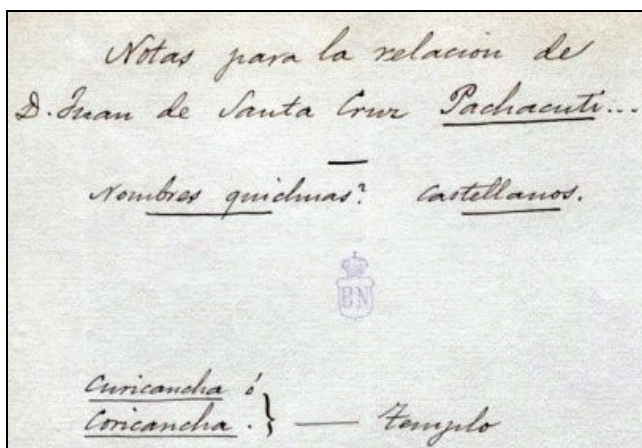 Notas para la relacion de
D. Juan de Santa Cruz Pachacuti...
Nombres quichuas? Castellanos.
BN
Curicancha ó
Coricancha. } — Templo